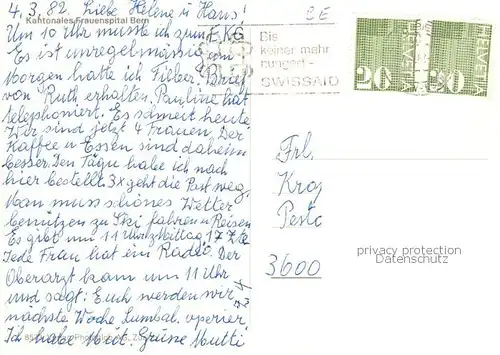 4.3.82. Liebe Helene u Hans!
Kantonales Frauenspital Bern
Um 10 Uhr musste ich zum EKG
Es ist unregelmässig am
Morgen hatte ich Silber. Brief
von Ruth erhalten. Pauline hat
telephoniert. Es schneit heute
Wir sind jetzt 4 Frauen. Der
Kaffee u Essen sind daheim
besser. Den Tägu habe ich nach
hier bestellt. 3x geht die Post weg.
Man muss schönes Wetter
benützen zu Ski fahren u Reisen
Es gibt um 11 Uhr z Mittag 17
Jede Frau hat ein Radio. Der
Oberarzt kam um 11 Uhr
und sagt: Euch werden wir
nächste Woche Lumbal. operier
Ich habe Mut. Grüsse Mutti
Bis
keiner mehr
hungert -
SWISSAID
HELVETIA
20
HELVETIA
50
Frl.
3600
privacy protection
Datenschutz